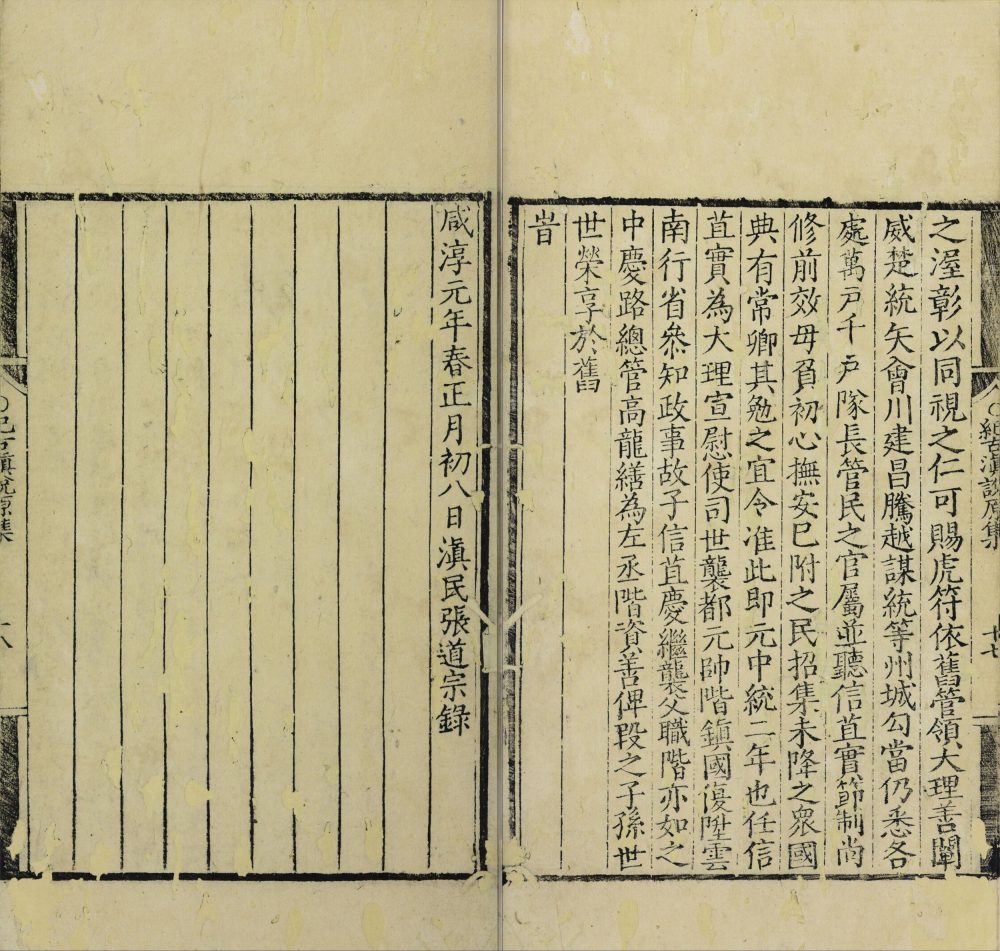 之渥彰以同視之仁可賜虎符依舊管領大理善闡
威楚統矢會川建昌騰越謀統等州城勾當仍悉各
處萬戸千戸隊長管民之官屬並聽信苴實節制尚
修前效毋負初心撫安已附之民招集未降之衆國
典有常卿其勉之宜令准此即元中統二年也任信
苴實為大理宣慰使司世襲都元帥階鎮國復陞雲
南行省叅知政事故子信苴慶繼襲父職階亦如之
中慶路總管高龍繕為左丞階資善俾段之子孫世
世榮享於舊
旹
紀古滇說原集
十七
咸淳元年春正月初八日滇民張道宗錄
紀古滇說原集
十八